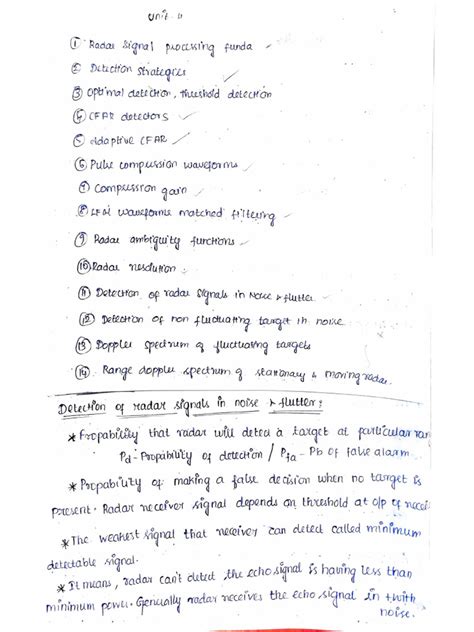 Unit - 4
① Radar Signal processing funda
② Detection Strategies
③ Optimal detection, threshold detection
④ CFAR detectors
⑤ Adaptive CFAR
⑥ Pulse compression waveforms
⑦ Compression gain
⑧ LFM waveforms matched filtering
⑨ Radar ambiguity functions
⑩ Radar resolution
⑪ Detection of radar signals in Noise & flutter
⑫ Detection of non fluctuating target in noise
⑬ Doppler spectrum of fluctuating targets
⑭ Range doppler spectrum of stationary & moving radar.
Detection of radar signals in noise & flutter:
* Propability that radar will detect a target at particular ran
Pd - Propibility of detection / Pfa - Pb of false alarm
* Propability of making a false decision when no target is
present. Radar receiver signal depends on threshold at o/p of recei
* The weakest signal that receiver can detect called minimum
detectable signal.
* It means, radar can't detect the echo signal is having less than
minimum power. Generally radar receives the echo signal in + with
noise.